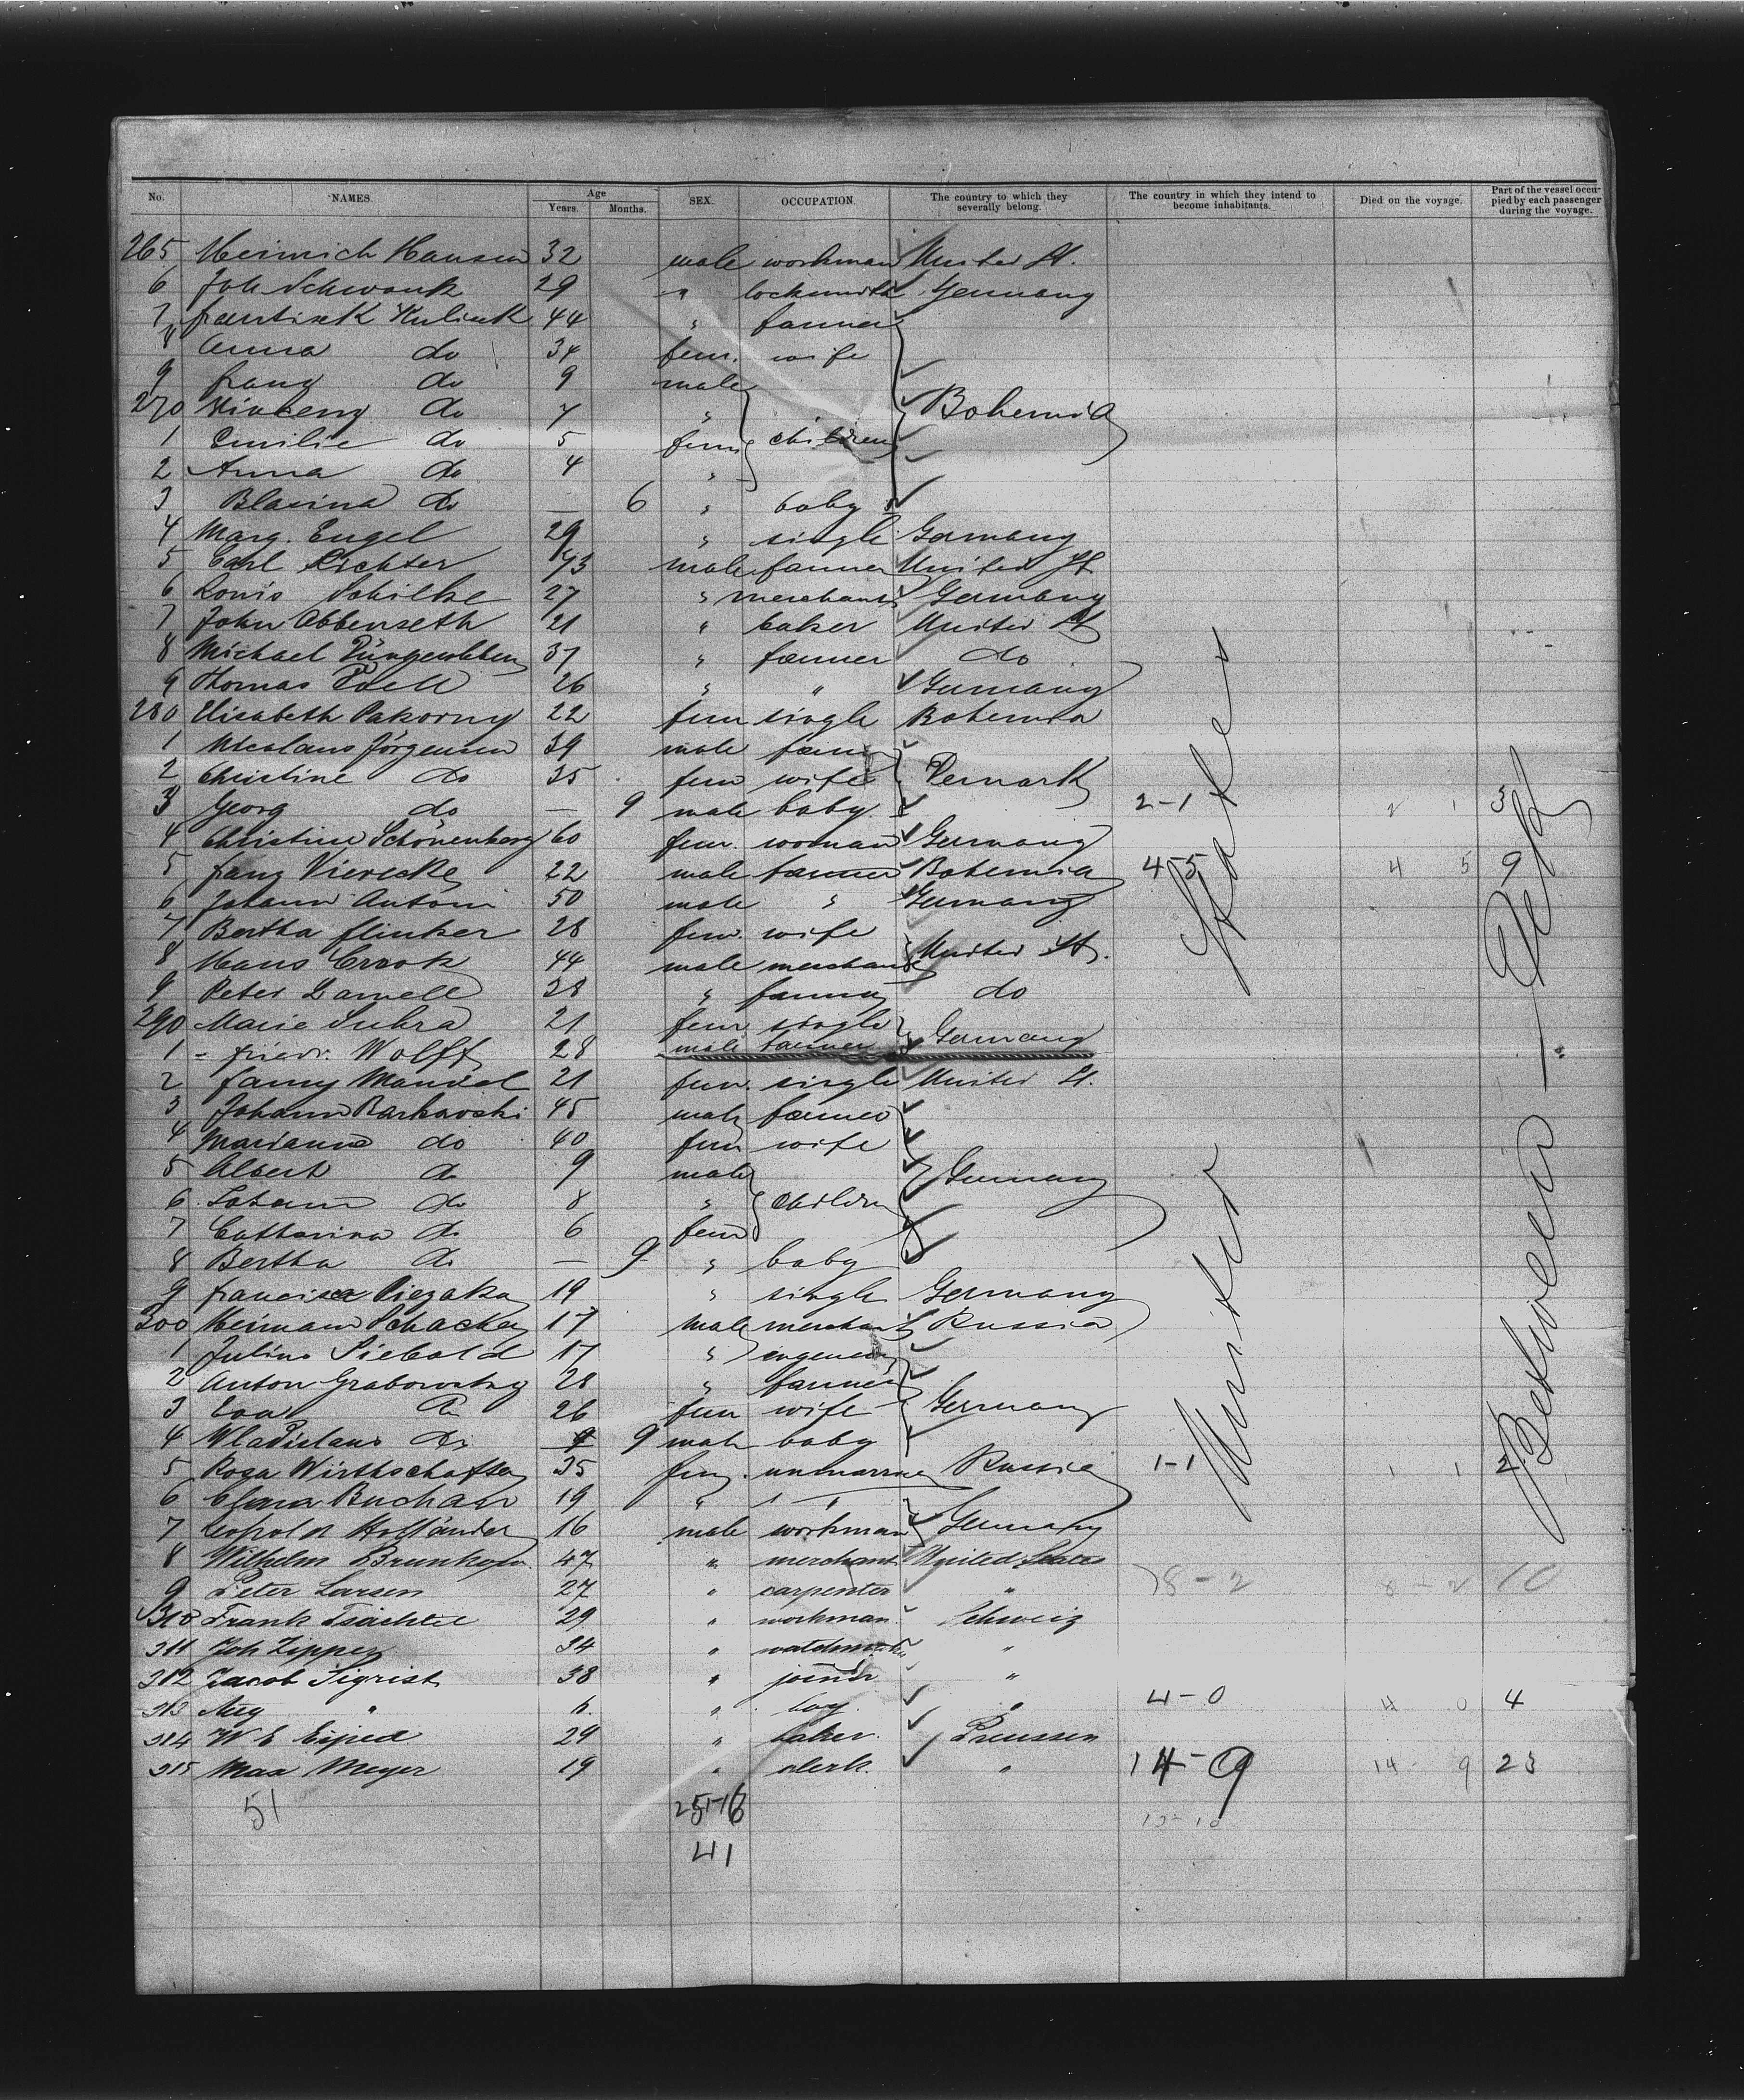 No. NAMES. Age Years. Months. SEX. OCCUPATION. The country to which they severally belong. The country in which they intend to become inhabitants. Died on the voyage. Part of the vessel occupied by each passenger during the voyage.
265 Heinrich Hansen 32 male workman United St.
6 Joh Schwank 29 " locksmith Germany
7 frantisek Kulink 44 " farmer
8 Anna do 34 fem. wife
9 franz do 9 male
270 Vincenz do 7 " children Bohemia
1 Emilie do 5 fem
2 Anna do 4 "
3 Blasina do — 6 " baby
4 Marg. Engel 29 " single Germany
5 Carl Richter 43 male farmer United St
6 Louis Schilke 27 " merchant Germany
7 John Abbenseth 21 " baker United St
8 Michael 37 " farmer do
9 Thomas 26 " " Germany
280 Elisabeth Pakorny 22 fem single Bohemia
1 Nicolaus Jörgensen 39 male farmer
2 Christine do 35 fem wife Denmark
3 Georg do — 9 male baby 2-1 2 1 3
4 Christine Schönenberg 60 fem. woman Germany
5 franz Vierecke 22 male farmer Bohemia 4-5 4 5 9
6 Johann Antoni 50 male " Germany
7 Bertha flinker 28 fem. wife
8 Hans Crook 44 male merchant United St.
9 Peter 38 " farmer do
290 Marie Suhra 21 fem single Germany
1 - friedr. Wolff 28 male farmer
2 fanny Mandel 21 fem. single United St.
3 Johann Barkowski 45 male farmer
4 Marianna do 40 fem wife
5 Albert do 9 male Germany
6 Johann do 8 " children
7 Catharina do 6 fem
8 Bertha do — 9 " baby
9 francisca Piezaka 19 " single Germany
300 Hermann Schacke 17 male merchant Russia
1 Julius Siebold 17 " engineer
2 Anton Grabowsky 28 " farmer
3 Eva do 26 fem wife Germany
4 Wladislaus do 9 male baby
5 Rosa Wirthschafter 35 fem. unmarried Russia 1-1 1 1 2
6 Clara Buchan 19 " "
7 Leopold Holländer 16 male workman Germany
8 Wilhelm Brunhorn 47 " merchant United States
9 Peter Larsen 27 " carpenter " 8-2 8-2 10
310 Frank 29 " workman Schweiz
311 Joh Zipper 34 " watchmaker "
312 Jacob Sigrist 38 " joiner "
313 Aug " " boy " 4-0 4 0 4
314 W E 29 " baker Preussen
315 Max Meyer 19 " clerk " 14-9 14-9 23
51 25-16
41
United States
Betweendeck